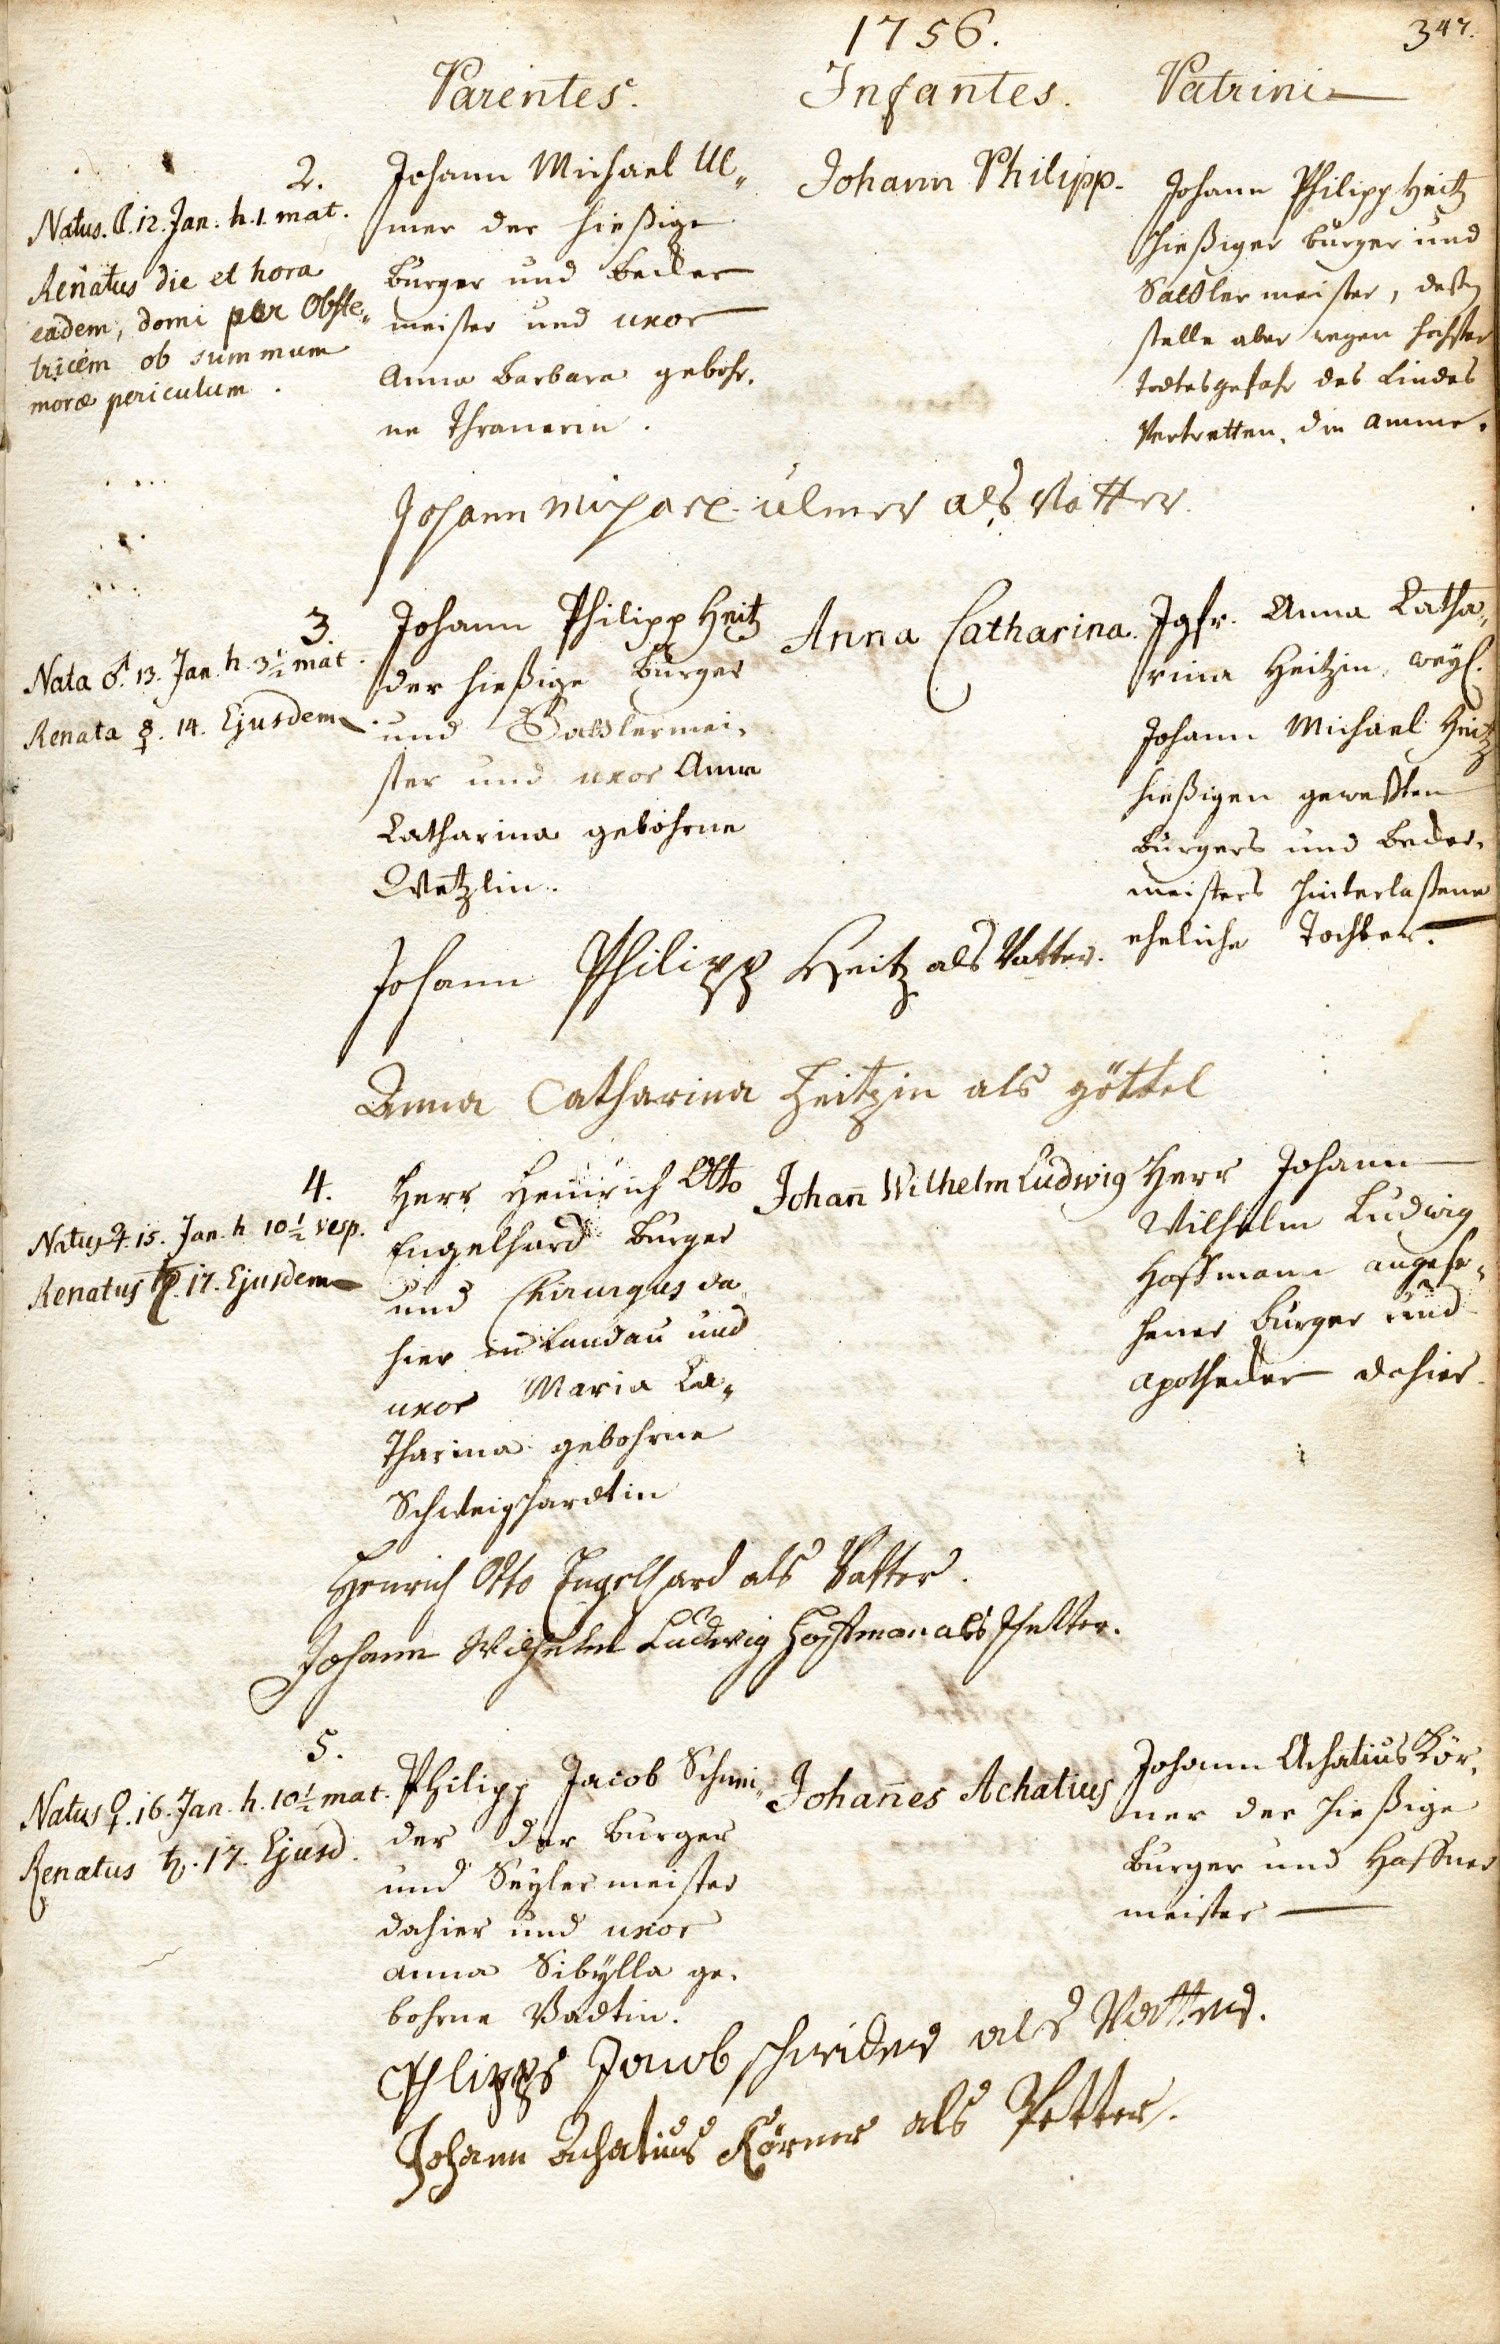 1756.
347.
Parentes.
Infantes.
Patrini
2.
Natus. ☾. 12. Jan. h. 1. mat.
Renatus die et hora
eadem, domi per Obste„
tricem ob summum
moræ periculum.
Johann Michael Ul„
mer der hießige
burger und becker
meister und uxor
Anna Barbara gebohr„
ne Thranerin.
Johann Philipp.
Johann Philipp Heitz
hießiger burger und
Sattler meister, deßen
stelle aber wegen höchster
todtesgefahr des Kindes
vertretten, die Amme.
Johann Michael ülmer als Vatter.
3.
Nata ♂. 13. Jan. h. 3½ mat.
Renata ☿. 14. Ejusdem
Johann Philipp Heitz
der hießige burger
und Sattlermei„
ster und uxor Anna
Catharina gebohrne
Wetzlin.
Anna Catharina.
Jgfr. Anna Catha„
rina Heitzin, weyl.
Johann Michael Heitz
hießigen geweßten
burgers und becker„
meisters hinterlaßene
eheliche Tochter.
Johann Philipp Heitz als Vatter.
Anna Catharina Heitzin als göttel
4.
Natus ♃. 15. Jan. h. 10½ vesp.
Renatus ♄. 17. Ejusdem
Herr Heinrich Otto
Engelhard burger
und Chirurgus da„
hier in Landau und
uxor Maria Ca„
tharina gebohrne
Schweighardtin
Johan̄ Wilhelm Ludwig
Herr Johann
Wilhelm Ludwig
Hoffmann angese„
hener burger und
apothecker dahier.
Henrich Otto Engelhard als Vatter.
Johann Wilhelm Ludwig Hoffman als Pfetter.
5.
Natus ♀. 16. Jan. h. 10½ mat.
Renatus ♄. 17. Ejusd.
Philipp Jacob Schnei„
der der burger
und Seyler meister
dahier und uxor
anna Sibÿlla ge„
bohrne Vadtin.
Johan̄es Achatius
Johann Achatius Kör„
ner der hießige
burger und Haffner
meister
Philipps Jacob schneider als Vatter.
Johann Achatius Körner als Petter.